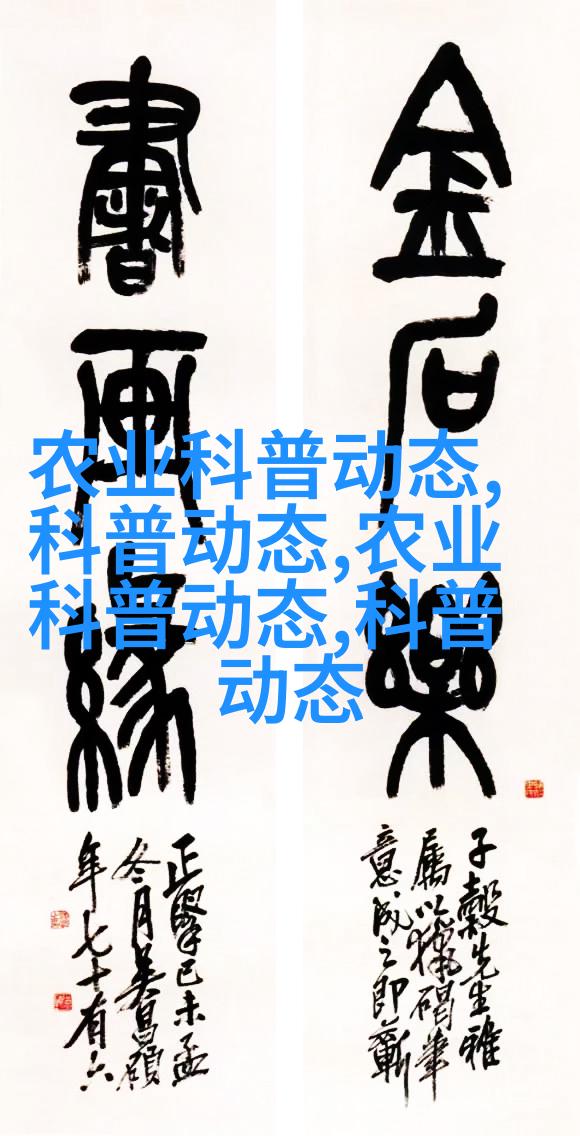 金石樂
子穀先生雅
屬以獵碣筆
意成之即蘄
書画緣
正 己未孟
冬月吴昌碩
年七十有六
农业科普动态,
科普动态,农业
科普动态,科普
动态